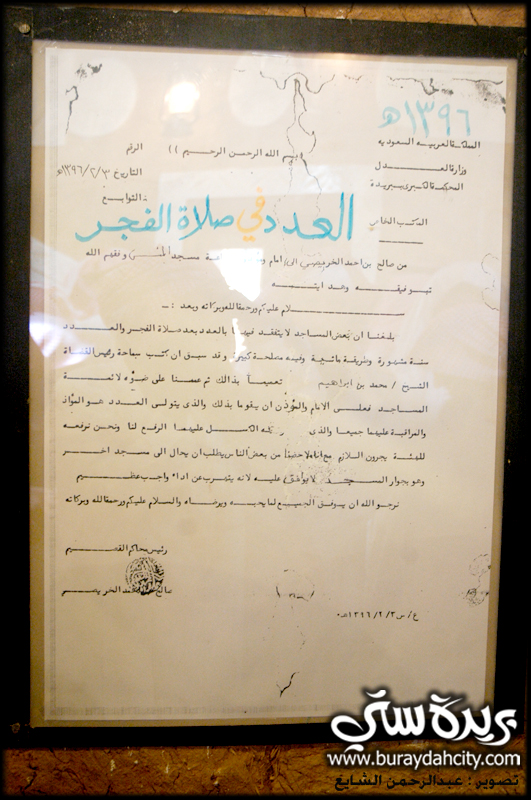 ١٣٩٦هـ
المملكة العربية السعودية
وزارة العدل
المحكمة الكبرى ببريدة
المكتب الخاص
بسم الله الرحمن الرحيم ))
الرقم
التاريخ ١٣٩٦/٢/٣هـ
التوابع
العدد في صلاة الفجر
من صالح بن احمد الخريصي الى / امام و مسجد وفقهم الله
السلام عليكم ورحمة الله وبركاته وبعد : ـ
بلغنا ان بعض المساجد لا يتفقد فيها بالعدد بعد صلاة الفجر والعدد
سنة مشهورة وطريقة ماثية وفيه مصلحة كبيرة وقد سبق ان كتب سماحة رئيس القضاة
الشيخ / محمد بن ابراهيم تعميماً بذالك ثم عممنا على ضوءه لائمة
المساجد فعلى الامام والمؤذن ان يقوما بذلك والذي يتولى العدد هو المؤذن
والمراقبة عليهما جميعا والذي عليهما الرفع لنا ونحن نرفعه
للهيئة يجرون اللازم مع اننا لاحظنا من بعض الناس يطلب ان يحال الى مسجد اخر
وهو بجوار المسجد لا يوافق عليه لانه يتهرب عن اداء واجب عظيم
نرجو الله ان يوفق الجميع لما يحبه ويرضاه والسلام عليكم ورحمة الله وبركاته
رئيس محاكم القصيم
صالح بن احمد الخريصي
ع/س ١٣٩٦/٢/٣هـ
بريدة ستي
www.buraydahcity.com
تصوير : عبدالرحمن الشايع